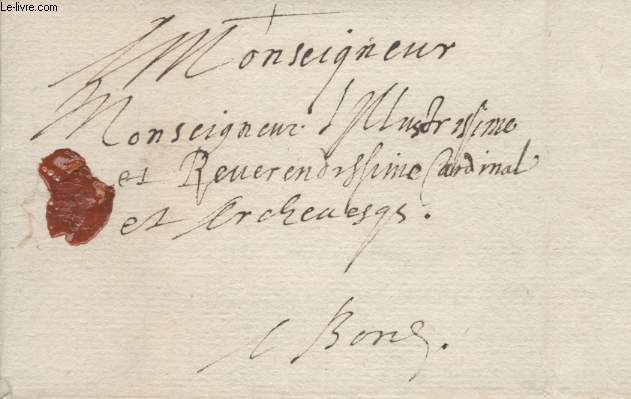 © Le-livre.com
A Monseigneur
Monseigneur l'Illustrissime
et Reuerendissime Cardinal
et Archeuesqs.